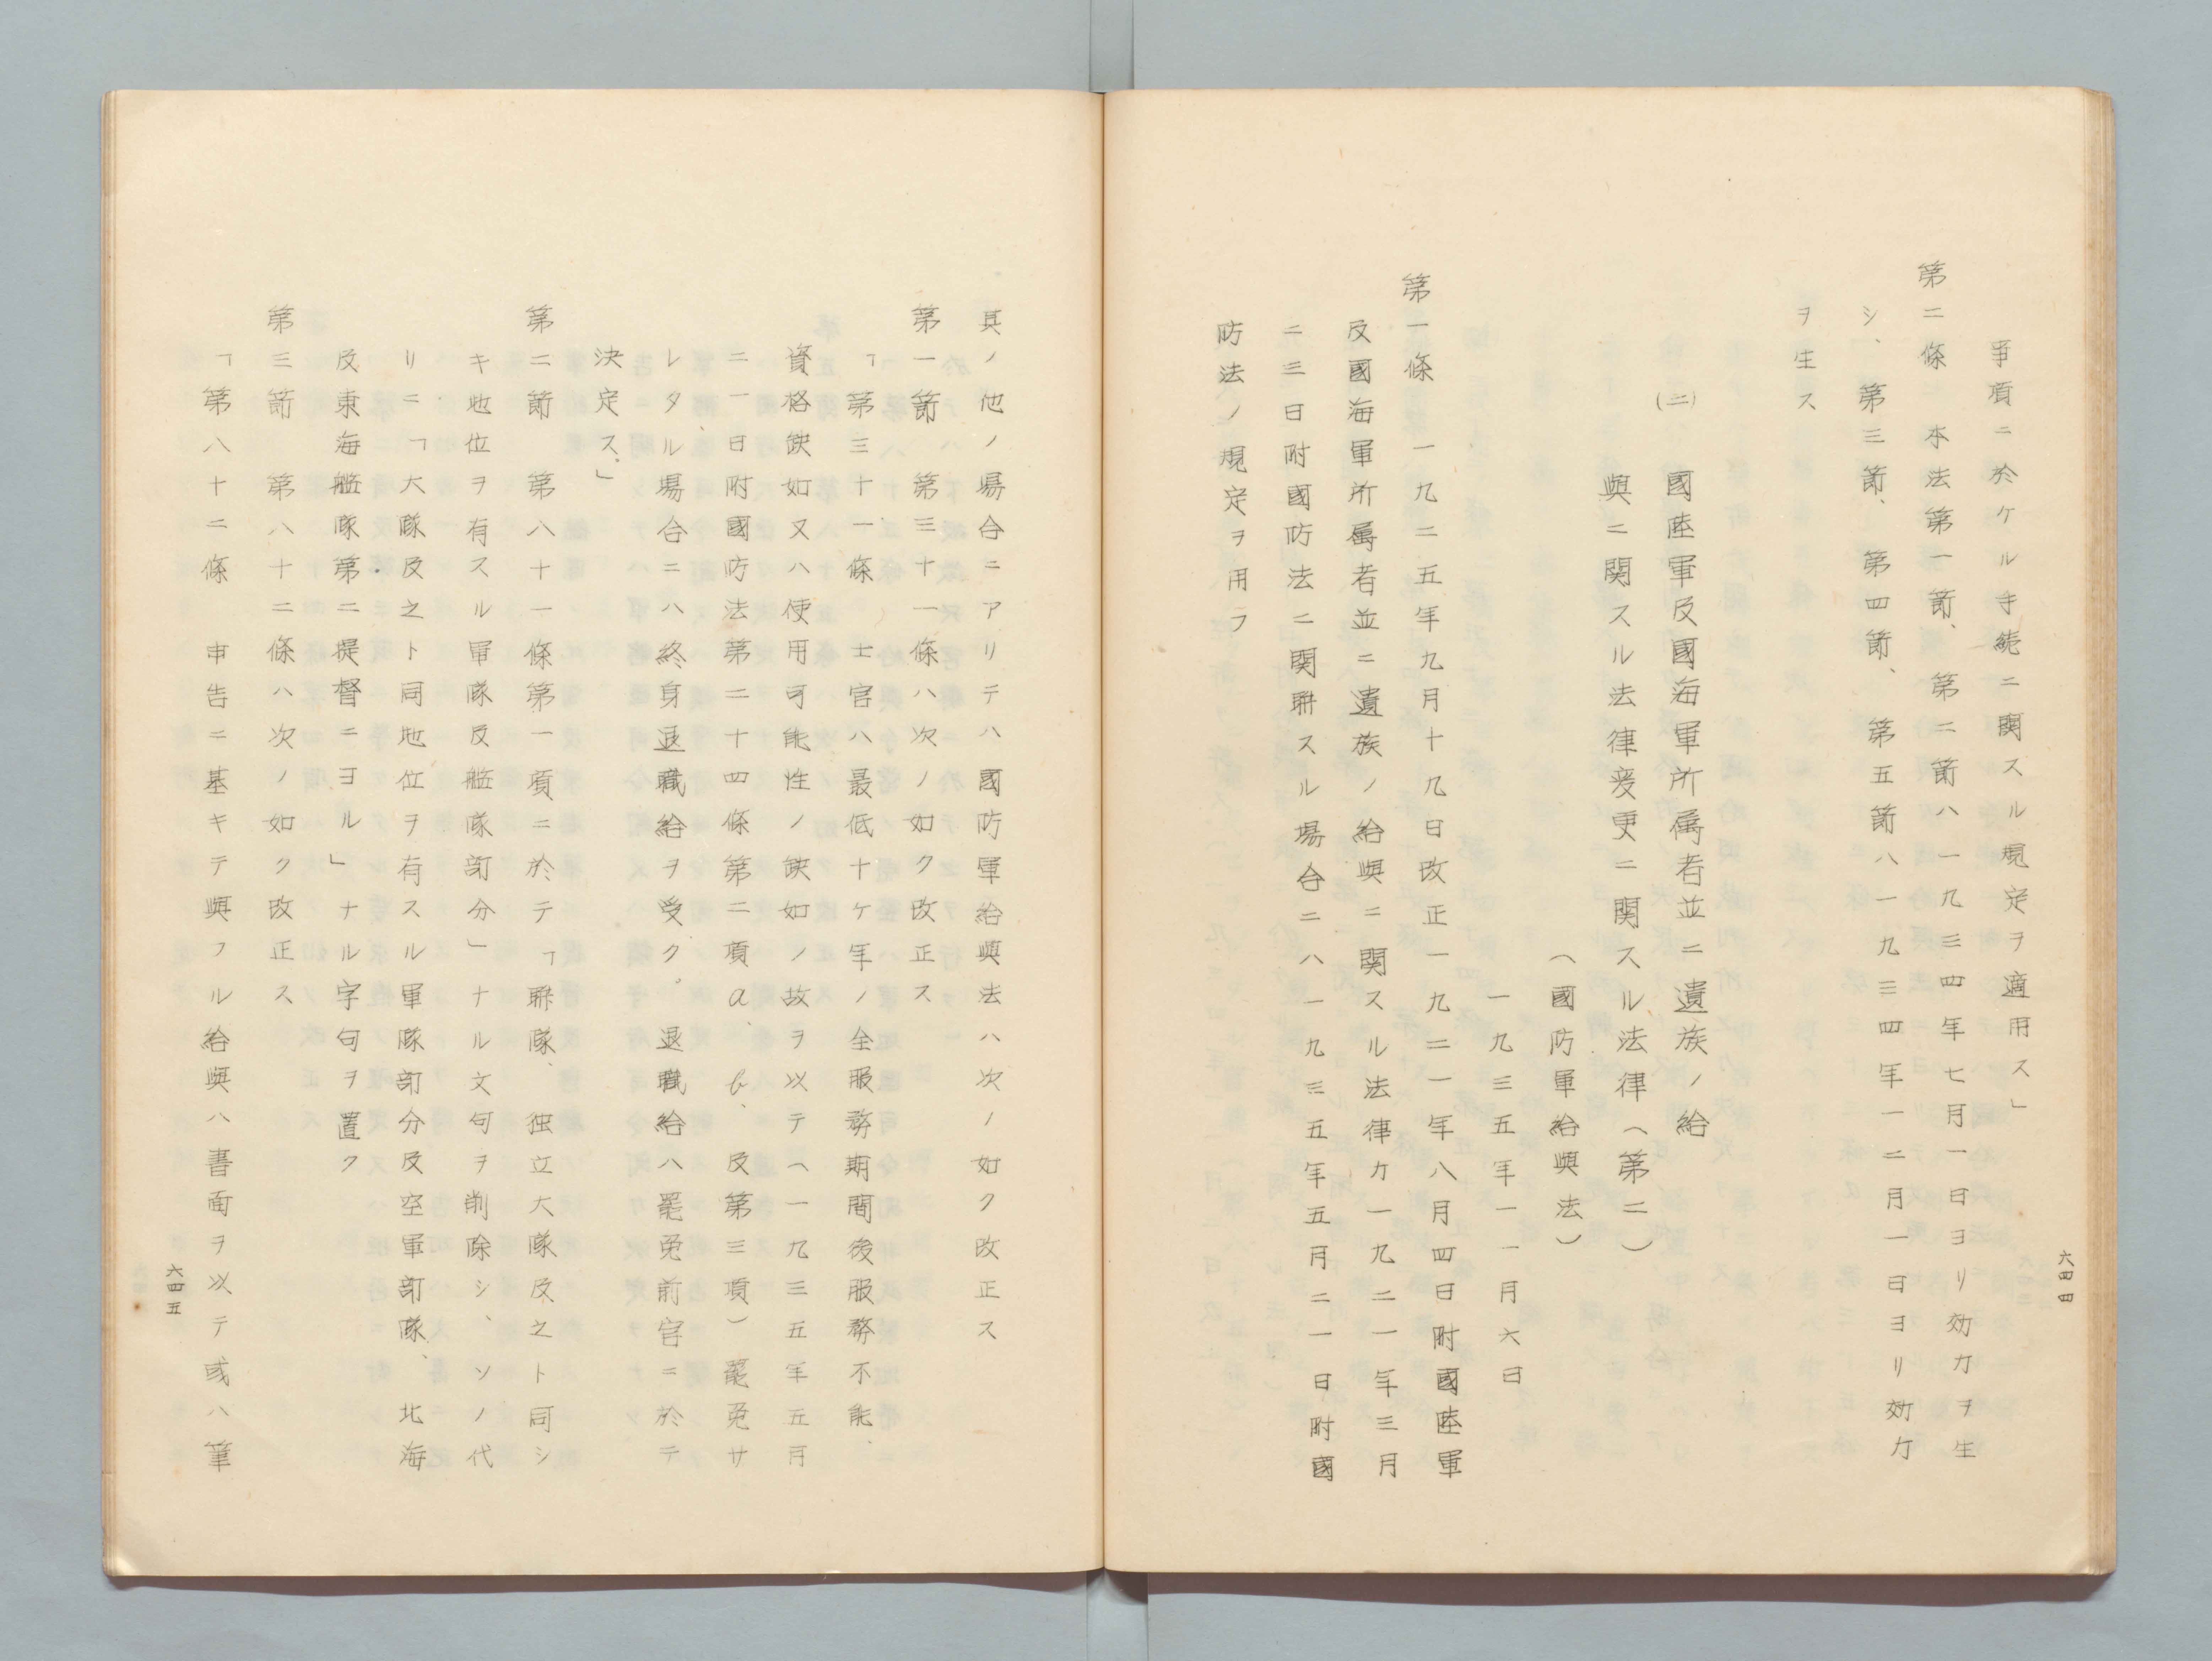 事項ニ於ケル手続ニ関スル規定ヲ適用ス」
第二條 本法第一節、第二節ハ一九三四年七月一日ヨリ効力ヲ生
シ、第三節、第四節、第五節ハ一九三四年一二月一日ヨリ効力
ヲ生ス
(二) 國陸軍及國海軍所属者並ニ遺族ノ給
與ニ関スル法律変更ニ関スル法律(第二)
(國防軍給與法)
一九三五年一一月六日
第一條 一九二五年九月十九日改正一九二一年八月四日附國陸軍
及國海軍所属者並ニ遺族ノ給與ニ関スル法律カ一九二一年三月
二三日附國防法ニ関聯スル場合ニハ一九三五年五月二一日附國
防法ノ規定ヲ用フ
六四四
其ノ他ノ場合ニアリテハ國防軍給與法ハ次ノ如ク改正ス
第一節 第三十一條ハ次ノ如ク改正ス
「第三十一條 士官ハ最低十ケ年ノ全服務期間後服務不能、
資格缺如又ハ使用可能性ノ缺如ノ故ヲ以テ(一九三五年五月
二一日附國防法第二十四條第二項a、b、及第三項)罷免サ
レタル場合ニハ終身退職給ヲ受ク。退職給ハ罷免前官ニ於テ
決定ス。」
第二節 第八十一條第一項ニ於テ「聯隊、独立大隊及之ト同シ
キ地位ヲ有スル軍隊及艦隊部分」ナル文句ヲ削除シ、ソノ代
リニ「大隊及之ト同地位ヲ有スル軍隊部分及空軍部隊、北海
及東海艦隊第二提督ニヨル」ナル字句ヲ置ク
第三節 第八十二條ハ次ノ如ク改正ス
「第八十二條 申告ニ基キテ與フル給與ハ書面ヲ以テ或ハ筆
六四五